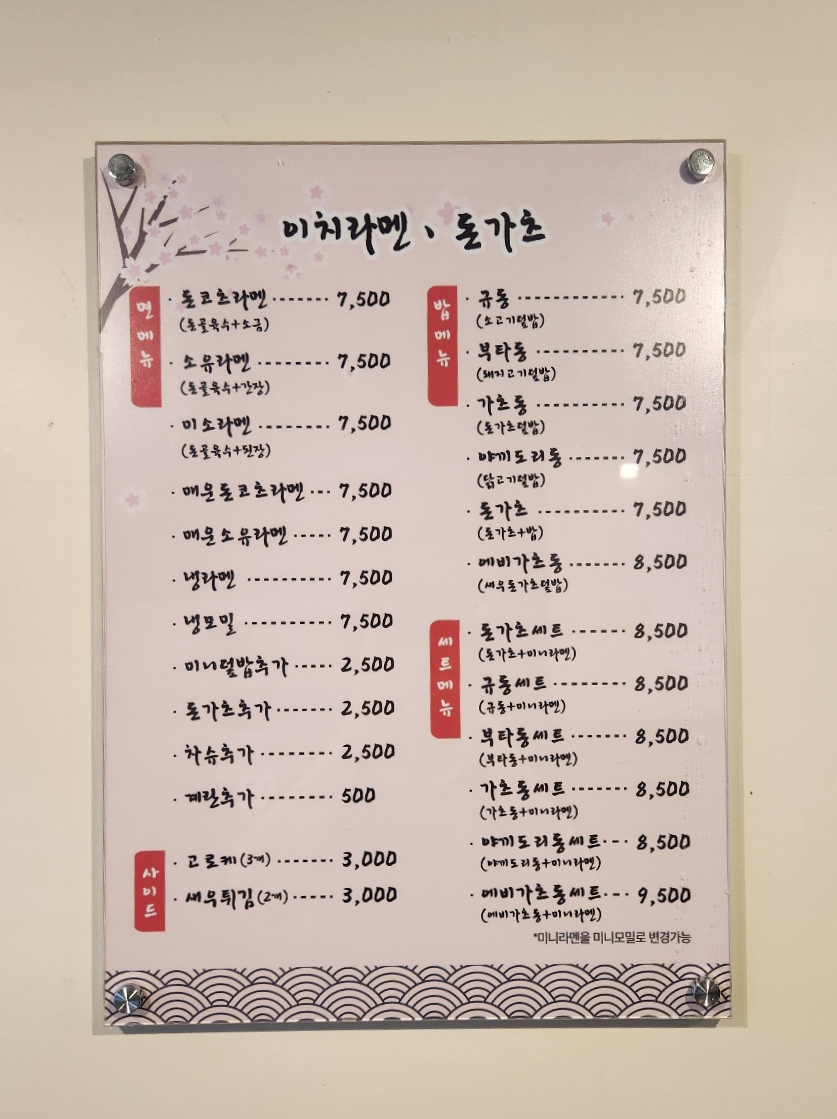 이치라멘、돈가츠
면메뉴
· 돈코츠라멘 ------- 7,500
(돈골육수+소금)
· 소유라멘 --------- 7,500
(돈골육수+간장)
· 미소라멘 --------- 7,500
(돈골육수+된장)
· 매운돈코츠라멘 --- 7,500
· 매운소유라멘 ----- 7,500
· 냉라멘 ---------- 7,500
· 냉모밀 ---------- 7,500
· 미니덮밥추가 ----- 2,500
· 돈가츠추가 ------- 2,500
· 차슈추가 --------- 2,500
· 계란추가 --------- 500
사이드
· 고로케(3개) ------- 3,000
· 새우튀김(2개) ----- 3,000
밥메뉴
· 규동 ------------- 7,500
(소고기덮밥)
· 부타동 ----------- 7,500
(돼지고기덮밥)
· 가츠동 ----------- 7,500
(돈가츠덮밥)
· 야끼도리동 ------- 7,500
(닭고기덮밥)
· 돈가츠 ----------- 7,500
(돈가츠+밥)
· 에비가츠동 ------- 8,500
(새우돈가츠덮밥)
세트메뉴
· 돈가츠세트 ------- 8,500
(돈가츠+미니라멘)
· 규동세트 --------- 8,500
(규동+미니라멘)
· 부타동세트 ------- 8,500
(부타동+미니라멘)
· 가츠동세트 ------- 8,500
(가츠동+미니라멘)
· 야끼도리동세트 --- 8,500
(야끼도리동+미니라멘)
· 에비가츠동세트 --- 9,500
(에비가츠동+미니라멘)
*미니라멘을 미니모밀로 변경가능